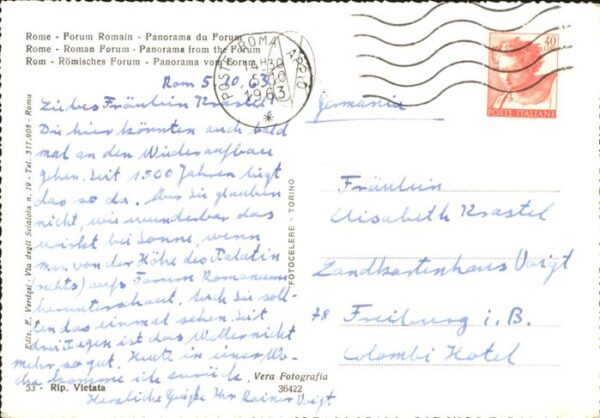 Rome - Forum Romain - Panorama du Forum
Rome - Roman Forum - Panorama from the Forum
Rom - Römisches Forum - Panorama vom Forum
POSTE ROMA
14-30
5-10
1963
40
POSTE ITALIANE
Rom 5.10.63
Liebes Fräulein Krastel!
Die hier könnten auch bald
mal an den Wiederaufbau
gehen. Seit 1500 Jahren liegt
das so da. Aber Sie glauben
nicht, wie wunderbar das
wirkt bei Sonne, wenn
man von der Höhe des Palatin
(rechts) aufs Forum Romanum
herunterschaut. Auch Sie soll-
ten das einmal sehen. Seit
drei Tagen ist das Wetter nicht
mehr so gut. Heute in einer Wo-
che komme ich zurück.
Herzliche Grüße Ihr Rainer Voigt.
Germania
Fräulein
Elisabeth Krastel
Landkartenhaus Voigt
78 Freiburg i. B.
Colombi Hotel
Ediz. E. Verdesi - Via degli Scialoia n. 19 - Tel. 317.908 - Roma
FOTOCELERE - TORINO
Vera Fotografia
36422
53 - Rip. Vietata